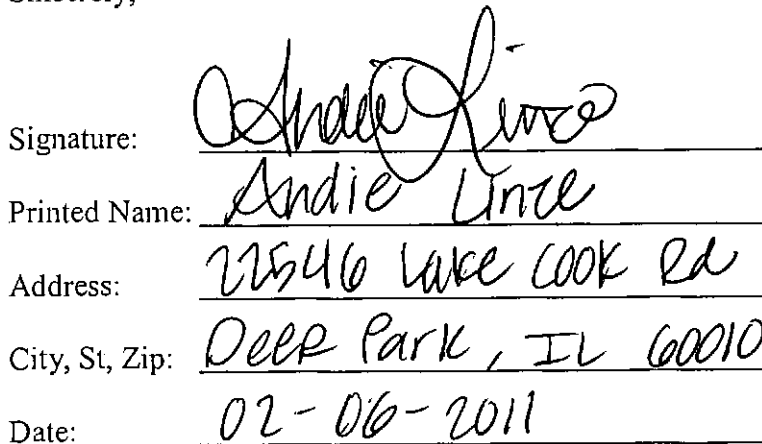 Sincerely,
Signature: Andie Linze
Printed Name: Andie Linze
Address: 22546 Lake Cook Rd
City, St, Zip: Deer Park, IL 60010
Date: 02-06-2011